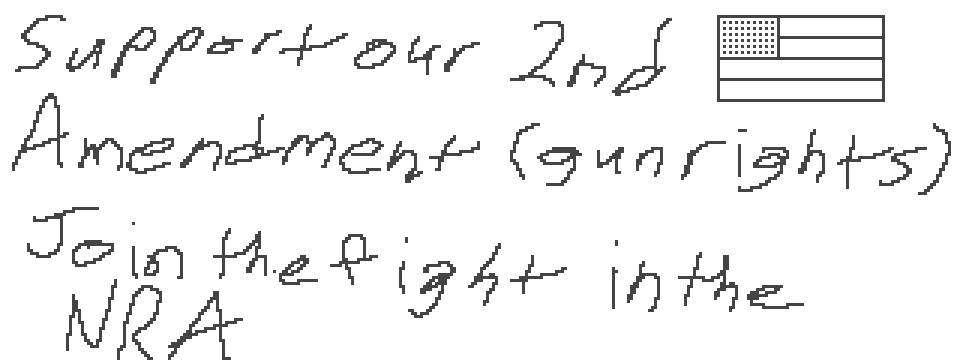 Support our 2nd
Amendment (gun rights)
Join the fight in the
NRA